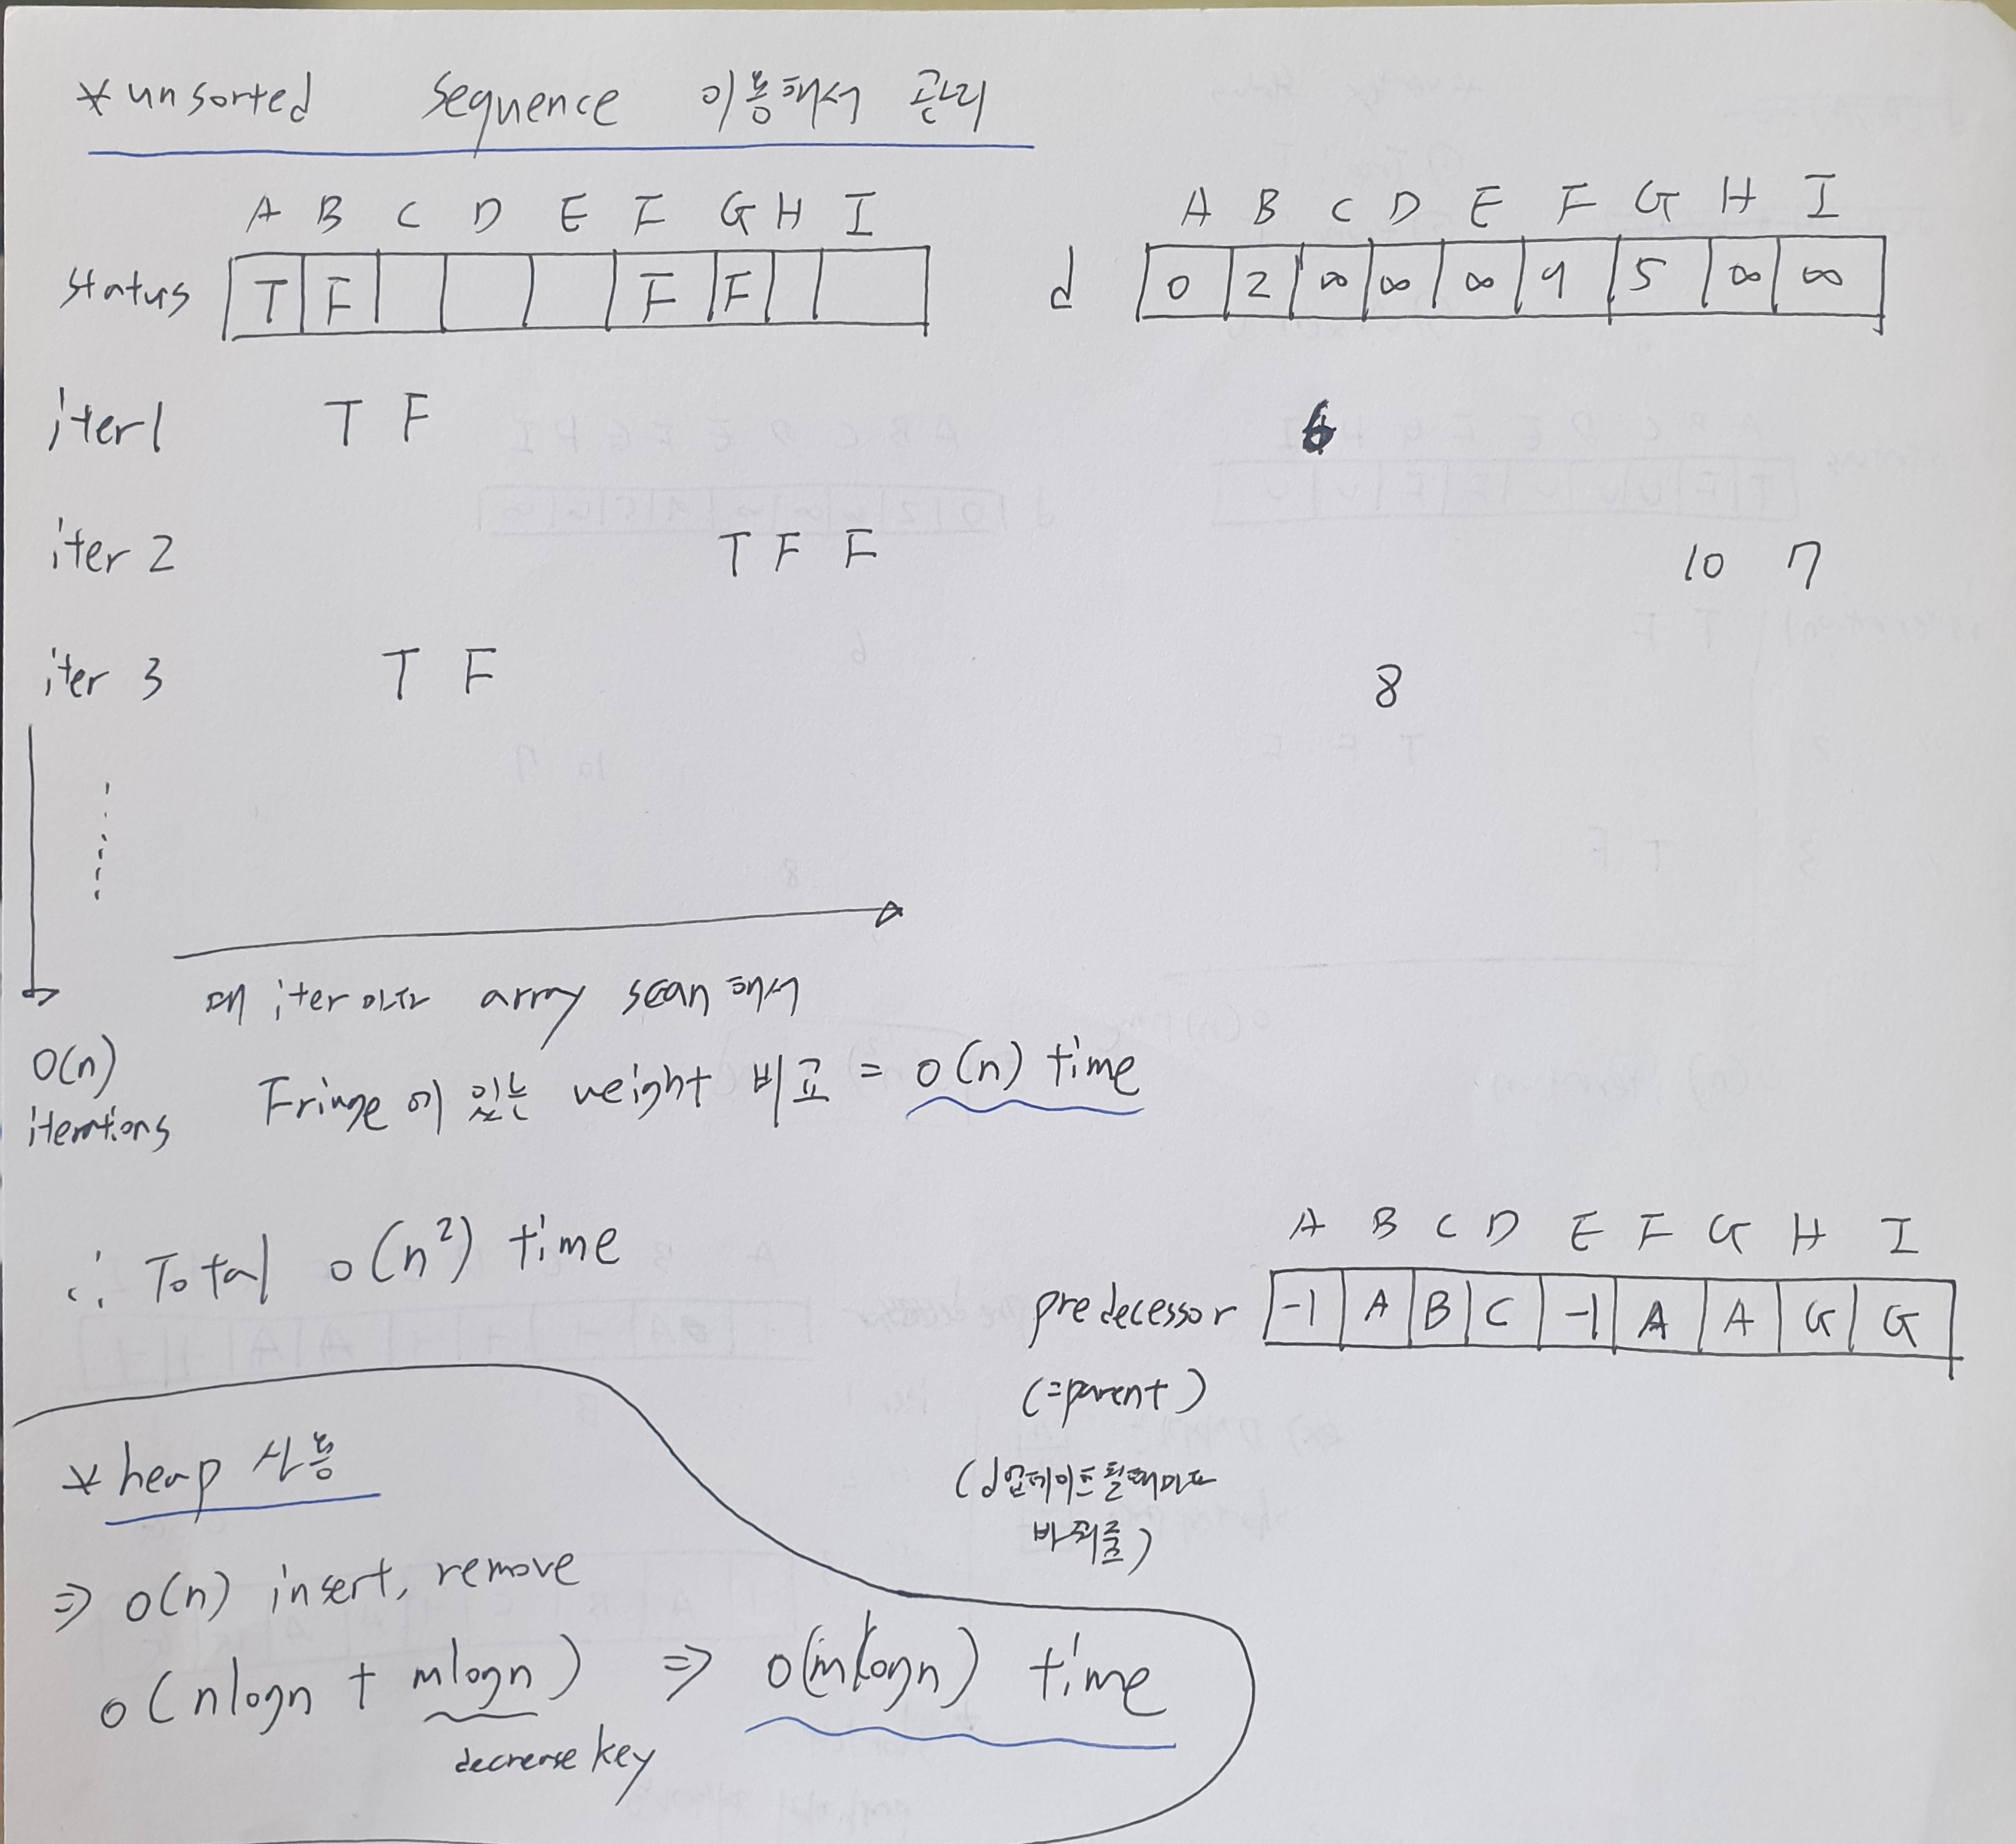 * unsorted sequence 이용해서 관리
A B C D E F G H I
status T F F F
A B C D E F G H I
d 0 2 ∞ ∞ ∞ 9 5 ∞ ∞
iter1 T F 6
iter 2 T F F 10 7
iter 3 T F 8
매 iter마다 array scan해서
O(n)
iterations
Fringe에 있는 weight 비교 = O(n) time
∴ Total O(n²) time
A B C D E F G H I
predecessor -1 A B C -1 A A G G
(=parent)
(d업데이트될때마다
바꿔줌)
* heap 사용
⇒ O(n) insert, remove
O(nlogn + mlogn) ⇒ O(mlogn) time
decrease key